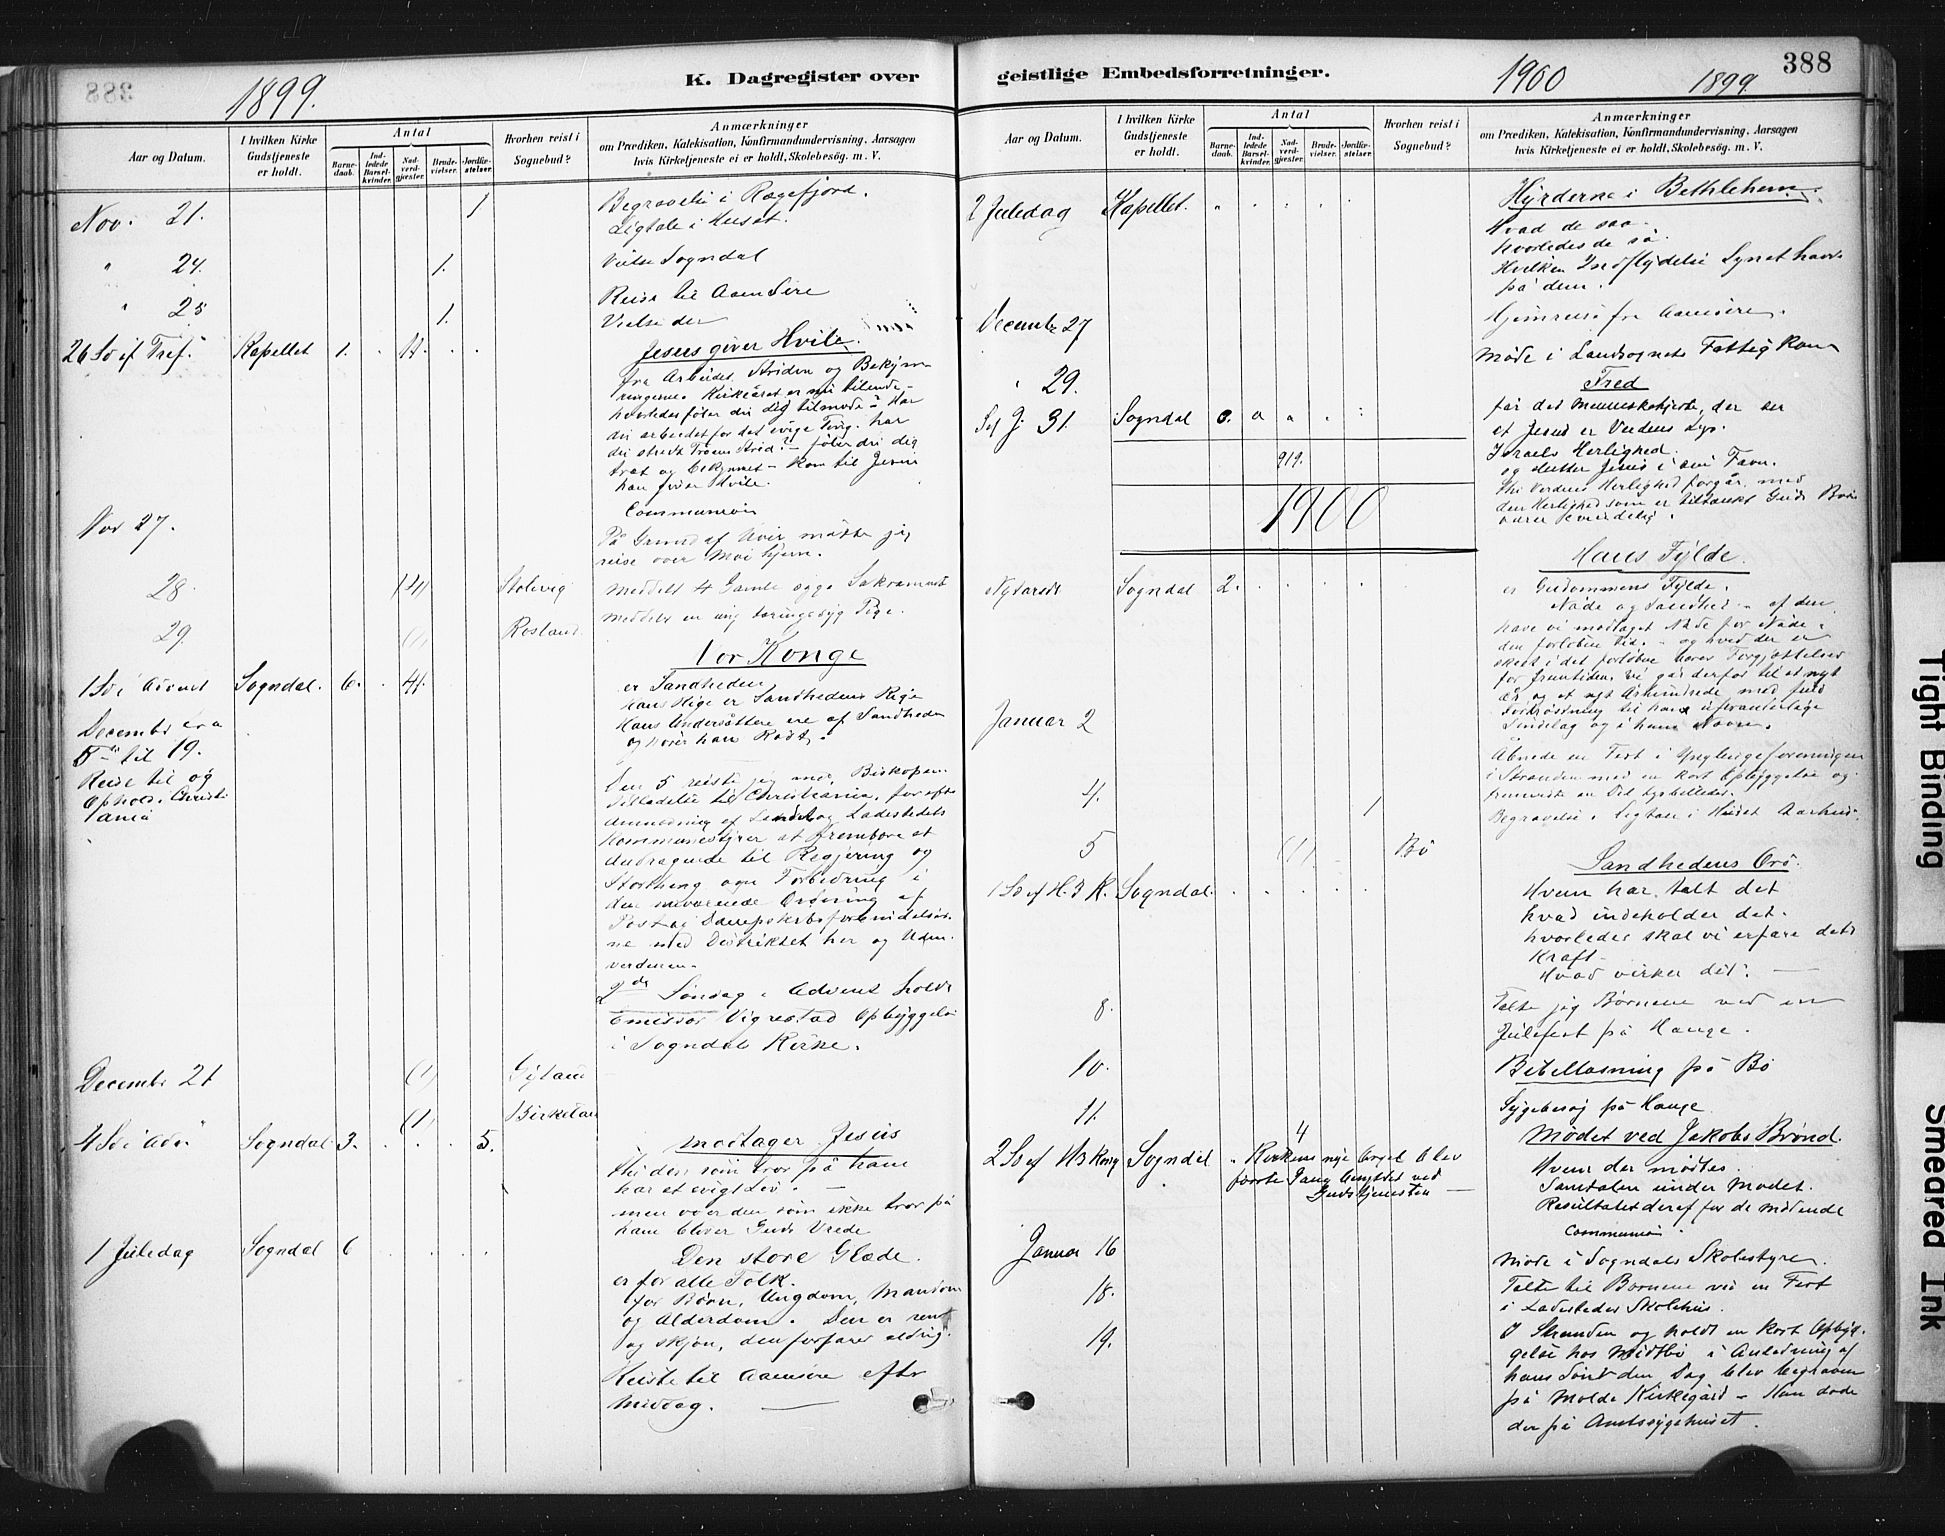 388
1899.
K. Dagregister over
Aar og Datum.
I hvilken Kirke
Gudstjeneste
er holdt.
Antal
Barne-
daab.
Ind-
ledede
Barsel-
kvinder.
Nad-
verd-
gjester.
Brude-
vielser.
Jordfæ-
stelser.
Hvorhen reist i
Sognebud?
Anmærkninger
om Prædiken, Katekisation, Konfirmandundervisning, Aarsagen
hvis Kirketjeneste ei er holdt, Skolebesög. m. V.
Nov. 21. 1 Begravelse i Rægefjord.
Ligtale i Huset.
" 24. 1. Vielse Sogndal
" 25 1. Reise til Aaen Sire
Vielse der
26 Sø ef Tref. Kapellet 1. . 11. . .
Jesus giver Hvile.
fra Arbeidet, Striden og Bekym
ringerne. Kirkeåret er nu tilende -
hvorledes føler du dig tilmode? Har
du arbeidet for det evige Ting. har
du stredt Troens Strid? - føler du dig
træt og bekymret - kom til Jesus
han giver Hvile.
Communion
Nov 27.
På Grund af Uveir måtte jeg
reise over Moi hjem.
28. (4) Stolevig Meddelt 4 Gamle syge Sakramentet
29 (1) Rosland. Meddelt en ung tæringssyg Pige.
Vor Konge
1 Sø i Advent Sogndal. 6. . 41.
er Sandheden
Hans Rige er Sandhedens Rige
Hans Undersåtter ere af Sandheden
og hører hans Røst.
December fra
5te til 19.
Reise til og
Ophold i Christi
ania
Den 5 reiste jeg med Biskopens
Tilladelse til Christiania, for efter
Anmodning af Land og Ladestedets
Kommunestyrer at frembære et
Andragende til Regjering og
Storthing om Forbedring i
den nuværende Ordning af
Post og Dampskibsforbindelser-
ne med Distriktet her og Uden-
verdenen.
2den Søndag i Advent holdt
Emissær Vigrestad Opbyggelse
i Sogndals Kirke.
December 21 (1) Gyland
(1) Birkeland
4 Sø i Adv Sogndal 3. . . . 5.
Modtager Jesus
Thi den som tror på ham
har et evigt Liv. -
men over den som ikke tror på
ham bliver Guds Vrede
1 Juledag Sogndal 6 . . . .
Den store Glæde.
er for alle Folk.
for Børn, Ungdom, Manddom
og Alderdom. Den er ren
og skjøn, den forfarer aldrig.
Reiste til Aaensire efter
Middag.
geistlige Embedsforretninger.
1900
1899
388
Aar og Datum.
I hvilken Kirke
Gudstjeneste
er holdt.
Antal
Barne-
daab.
Ind-
ledede
Barsel-
kvinder.
Nad-
verd-
gjester.
Brude-
vielser.
Jordfæ-
stelser.
Hvorhen reist i
Sognebud?
Anmærkninger
om Prædiken, Katekisation, Konfirmandundervisning, Aarsagen
hvis Kirketjeneste ei er holdt, Skolebesög. m. V.
2 Juledag Kapellet. " . . . .
Hyrderne i Bethlehem.
Hvad de saa.
Hvorledes de så.
Hvilken Indflydelse Synet havde
på dem.
December 27 Hjemreise fra Aaensire.
" 29. Møde i Landsognets Fattigkom
Fred
Sø J. 31. Sogndal 0. 0 0 . .
får det Menneskehjerte, der ser
at Jesus er Verdens Lys.
Israels Herlighed
og slutter Jesus i sin Favn.
Thi Verdens Herlighed forgår, med
den Herlighed som er tiltænkt Guds Børn
varer evindelig.
919.
1900
Hans Fylde.
Nytårsd Sogndal 2. . . . .
er Guddommens Fylde.
Nåde og Sandhed. - af den
have vi modtaget Nåde for Nåde
den forløbne Tid. - og hvad der er
skeet i det forløbne bærer Forjættelser
for fremtiden. Vi går derfor til et nyt
år og et nyt Århundrede med fuld
Fortrøstning til hans uforanderlige
Sindelag og i hans Navn.
Januar 2
Åbnede en Fest i Ynglingeforeningen
i Stranden med en kort Opbyggelse og
fremviste en Del Lysbilleder.
4. 1 Begravelse. Ligtale i Huset Aarhus.
5 (1) Bø
Sandhedens Ord.
1 Sø ef H. 3 K. Sogndal. . . . . .
Hvem har talt det
hvad indeholder det.
hvorledes skal vi erfare dets
Kraft -
Hvad virker det. -
8. Talte jeg Børnene ved en
Julefest på Hauge.
10. Bibellæsning på Bø
11. Sygebesøg på Hauge
Mødet ved Jakobs Brønd.
2 Sø ef H 3 Kong Sogndal " Kirkens nye Orgel blev
første Gang benyttet ved
Gudstjenesten -
4
Hvem der mødtes.
Samtalen under Mødet.
Resultatet deraf for de mødende
Communion
Januar 16 Møde i Sogndals Skolestyre.
18. Talte til Børnene ved en Fest
i Ladestedets Skolehus.
19. I Stranden og holdt en kort Opbyg-
gelse hos Midtbø i Anledning af
hans Søn den Dag blev begraven
på Molde Kirkegård - Han døde
der på Amtssygehuset.
Tight Binding
Smeared Ink